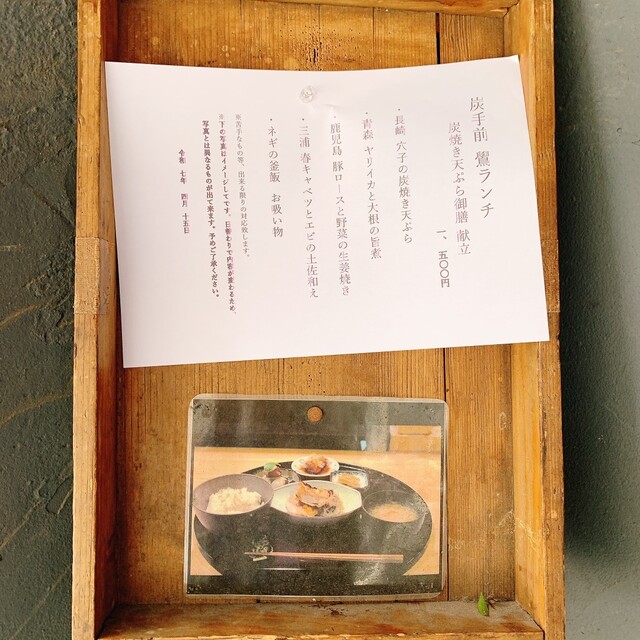 炭手前 鷽ランチ
炭焼き天ぷら御膳 献立
一、五〇〇円
・長崎 穴子の炭焼き天ぷら
・青森 ヤリイカと大根の旨煮
・鹿児島 豚ロースと野菜の生姜焼き
・三浦 春キャベツとエビの土佐和え
・ネギの釜飯 お吸い物
※苦手なもの等、出来る限りの対応致します。
※下の写真はイメージとしてです。日替わりで内容が変わるため、
写真とは異なるものが出て来ます。予めご了承ください。
令和 七年 四月 十五日